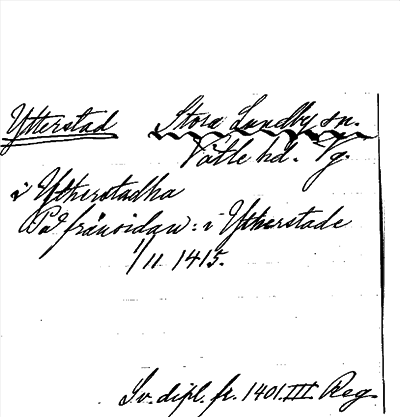 Ytterstad Stora Lundby sn.
Vättle hd. Vg.
i Ytherstadha
På frånsidan: i Ytherstade
1/11 1415.
Sv. dipl. fr. 1401. III. Reg.